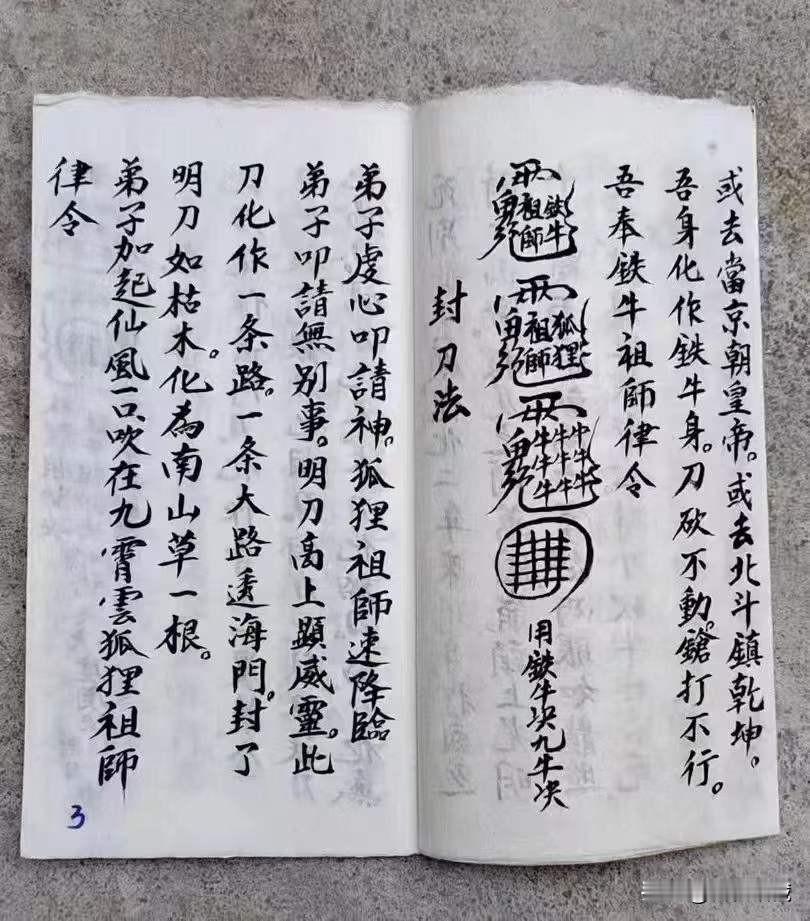 或去當京朝皇帝。或去北斗鎮乾坤。
吾身化作鉄牛身。刀砍不動。鎗打不行。
吾奉鉄牛祖師律令
鉄牛祖師
狐狸祖師
牛牛牛牛牛牛牛牛牛
用鉄牛决九牛决
封刀法
弟子虔心叩請神。狐狸祖師速降臨
弟子叩請無别事。明刀高上顕威靈。此
刀化作一条路。一条大路透海門。封了
明刀如枯木。化為南山草一根。
弟子加起仙風一口吹在九霄雲狐狸祖師
律令
3